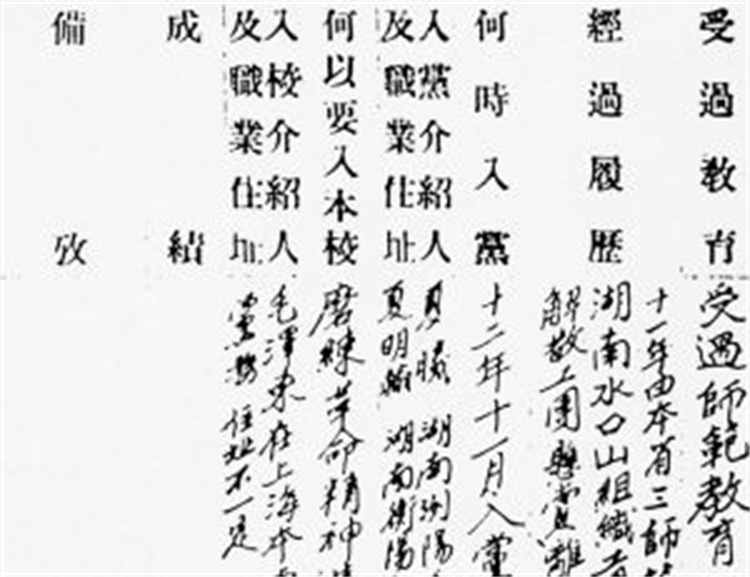 受過教育
受過師範教育
經過履歷
十一年由本省三師
湖南水口山組織
解散工團離
何時入黨
十二年十一月入黨
入黨介紹人
及職業住址
夏曦 湖南陽
夏明翰 湖南衡陽
何以要入本校
磨練革命精神
入校介紹人
及職業住址
毛澤東在上海本
黨務 住址不一定
成績
備攷